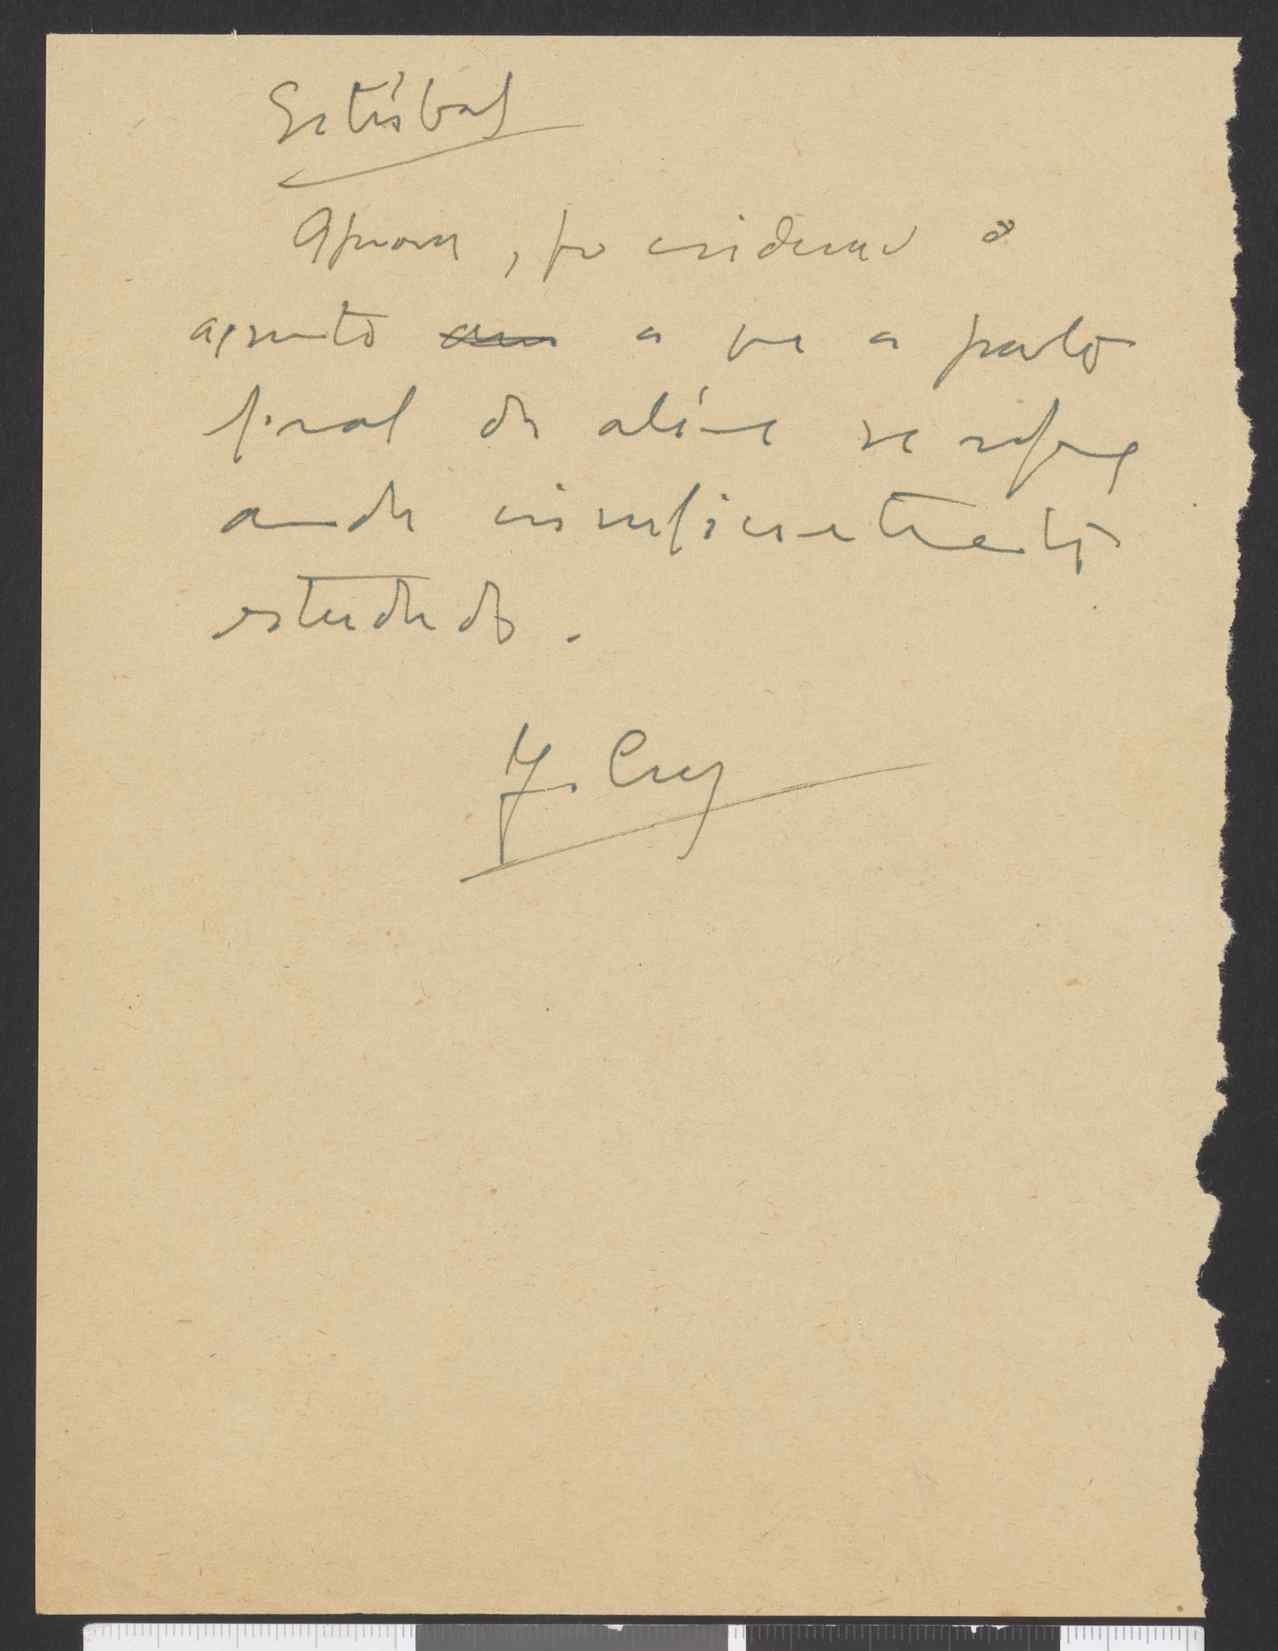 Setúbal
Aprovo, por considerar o
assunto a que a parte
final da alínea se refere
ainda insuficientemente
estudado.
J. Cruz